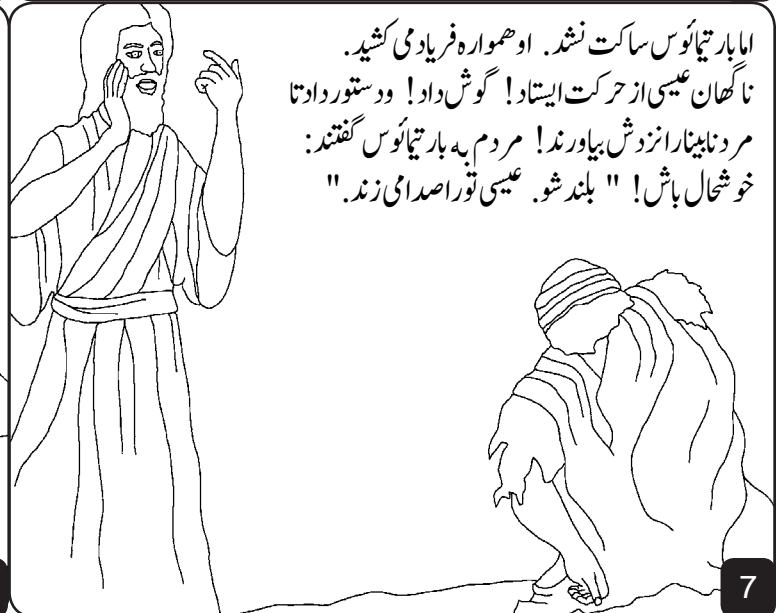 اما بارتیمائوس ساکت نشد. او همواره فریاد می کشید.
ناگهان عیسی از حرکت ایستاد! گوش داد! و دستور داد تا
مرد نابینا را نزدش بیاورند! مردم به بارتیمائوس گفتند:
خوشحال باش! " بلند شو. عیسی تو را صدا می زند."
7